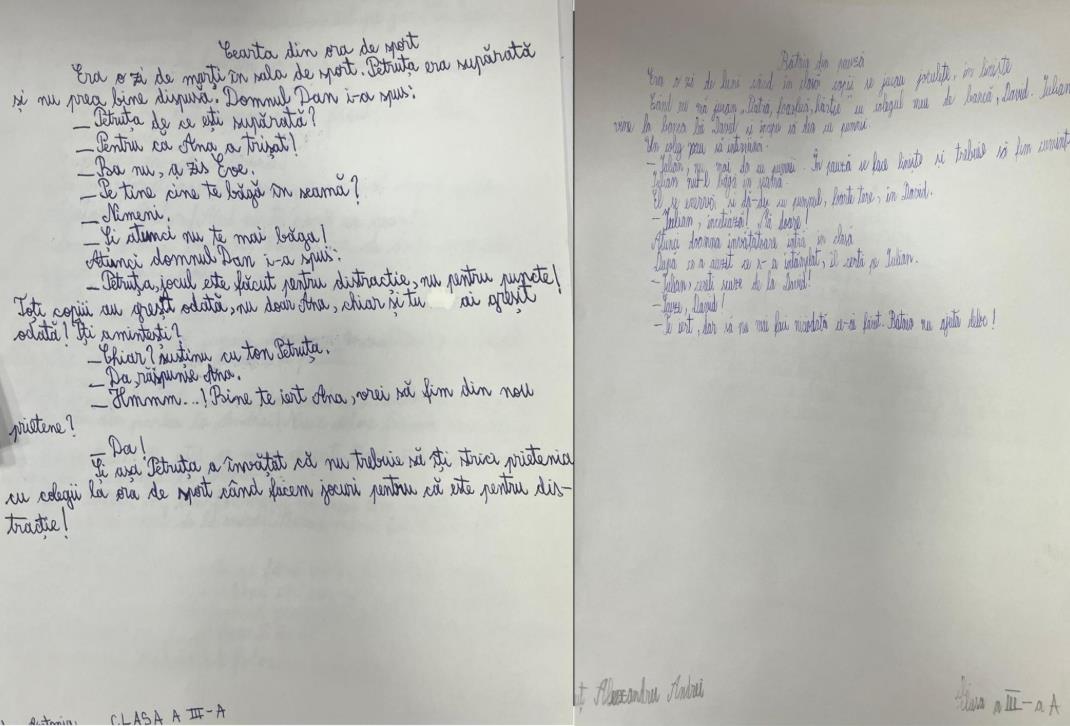 Cearta din ora de sport
Era o zi de marți în sala de sport. Petruța era supărată
și nu prea bine dispusă. Domnul Dan i-a spus:
— Petruța de ce ești supărată?
— Pentru ca Ana a trișat!
— Ba nu, a zis Eve.
— Pe tine cine te băgă în seamă?
— Nimeni.
— Și atunci nu te mai băga!
Atunci domnul Dan i-a spus:
— Petruța, jocul este făcut pentru distractie, nu pentru puncte!
Toți copiii au greșit odată, nu doar Ana, chiar și tu ai greșit
odată! Îți amintești?
— Chiar? susținu cu ton Petruța.
— Da, răspunse Ana.
— Hmmm...! Bine te iert Ana, vrei să fim din nou
prietene?
— Da!
Și așa Petruța a învățat că nu trebuie să îți strici prietenia
cu colegii la ora de sport când facem jocuri pentru că este pentru dis-
tracție!
CLASA A III-A
Bătaia din pauză
Era o zi de luni când în clasă copiii se jucau jocurile, în liniște
Când ne jucam „Piatra, foarfecă, hârtie" cu colegul meu de bancă, David. Iulian
vine la banca lui David și începe să dea cu pumni.
Un coleg să intervină.
— Iulian, nu mai da cu pumni. În pauză se face liniște și trebuie să fim cuminți
Iulian nu-l bagă în seamă.
El se enervă și dă-du cu pumnul, foarte tare, în David.
— Iulian, încetează! Mă doare!
Atunci doamna învățătoare intră în clasă
După ce a auzit ce s-a întâmplat, îl certă pe Iulian.
— Iulian, cere scuze de la David!
— Scuze, David!
— Te iert, dar să nu mai faci niciodată ce-ai făcut. Bătaia nu ajută deloc!
Alexandru Andrei
Clasa a III-a A